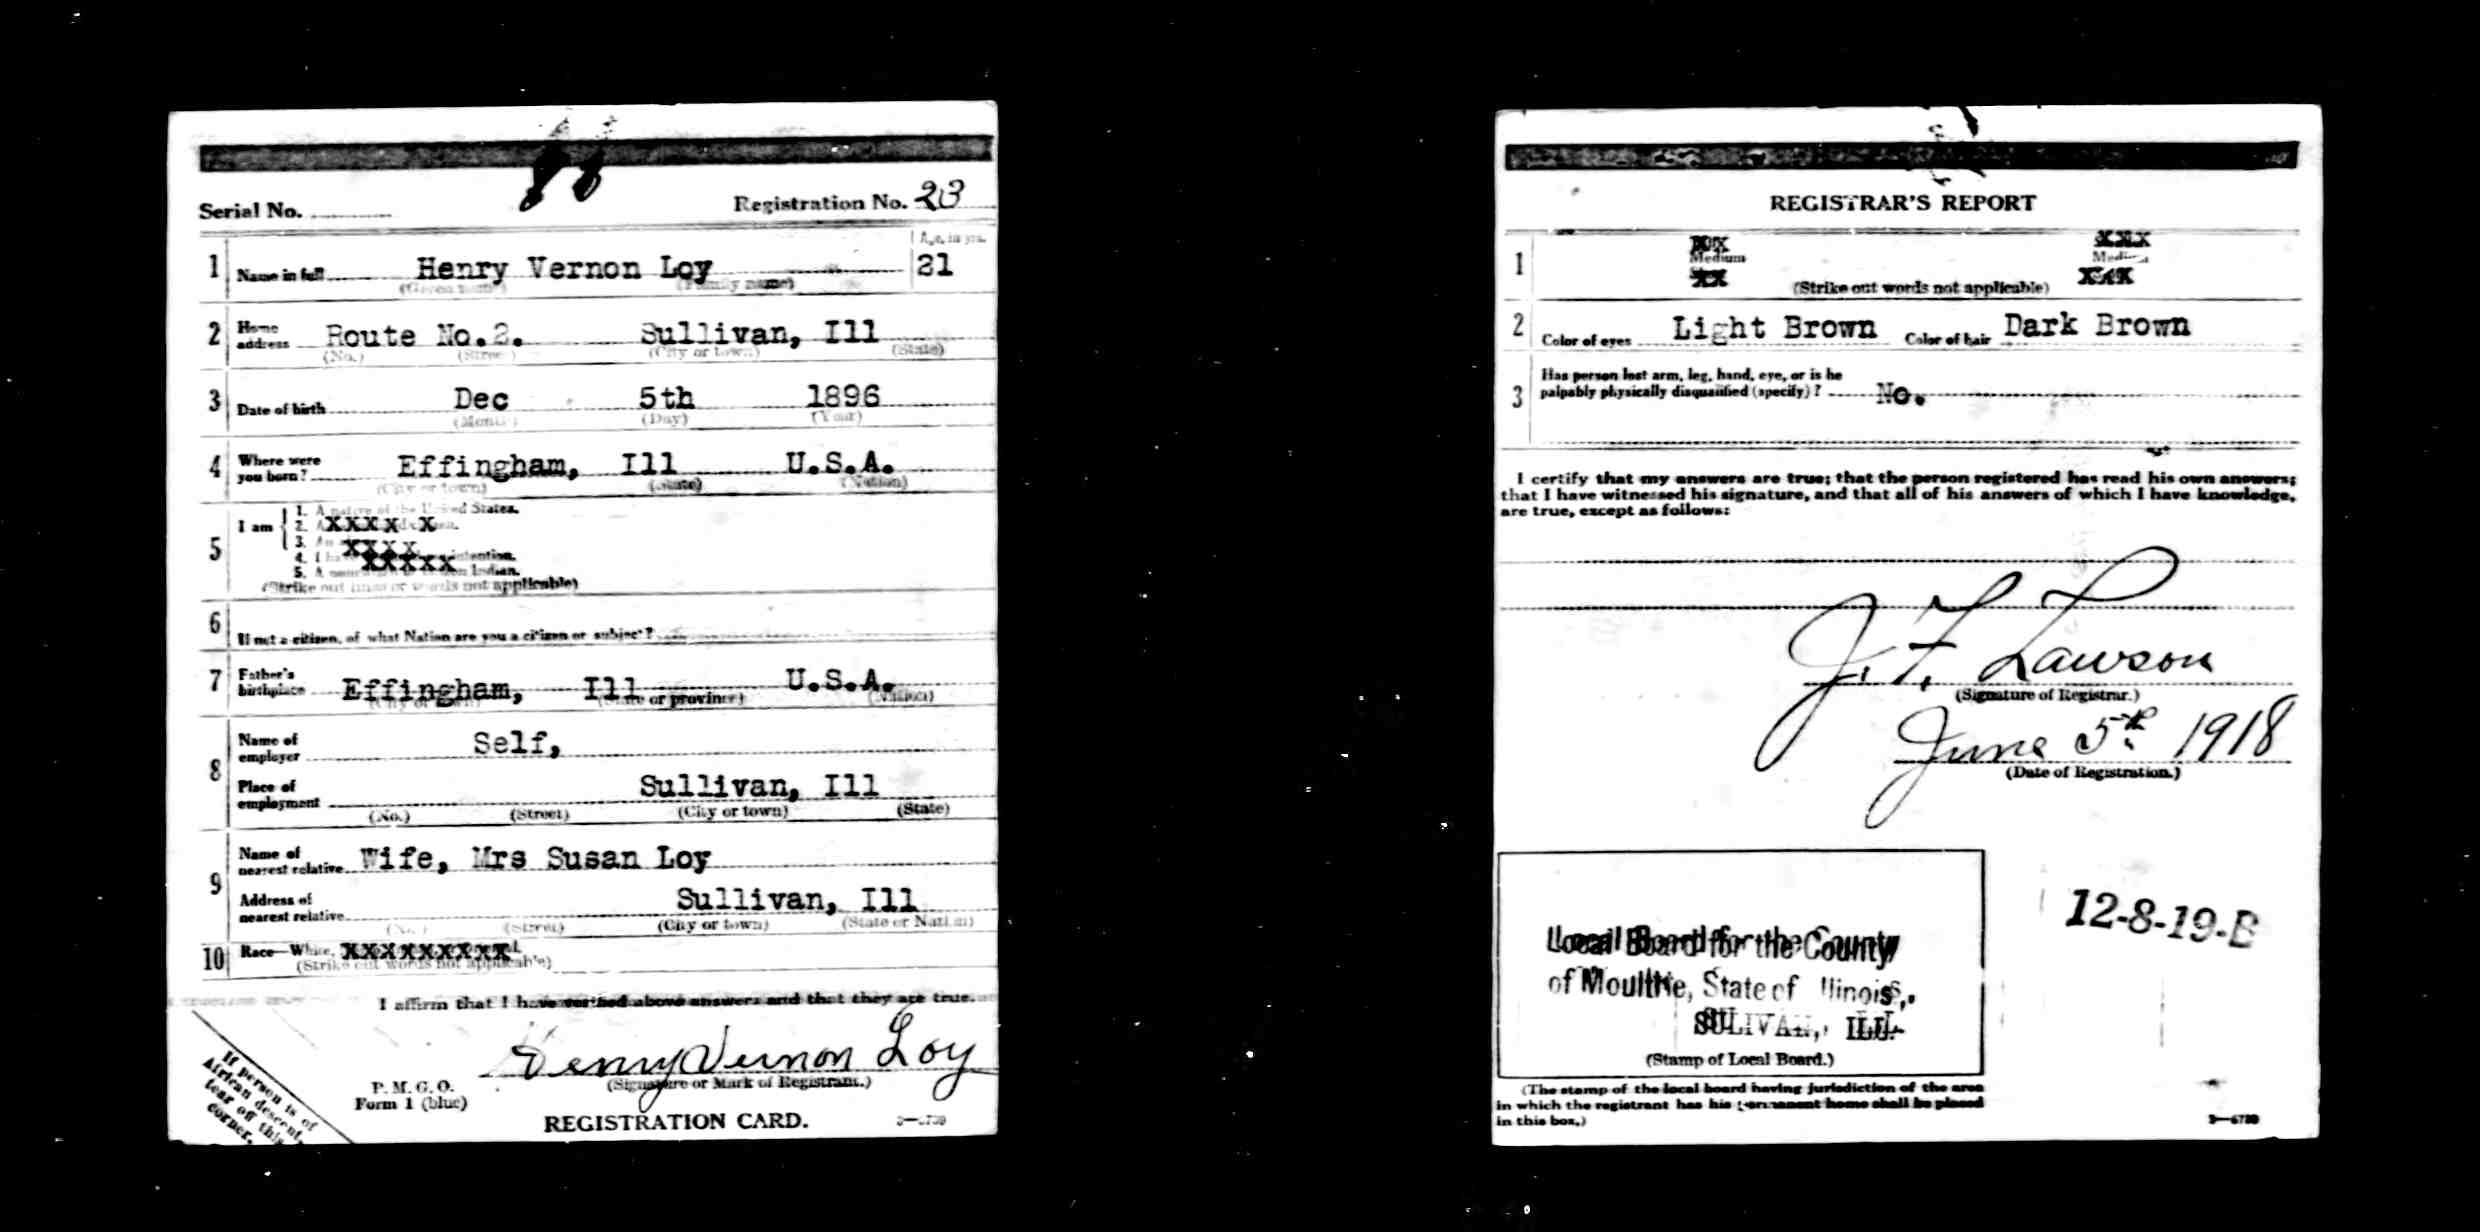 Serial No.
Registration No. 23
1 Name in full Henry Vernon Loy
(Given name) (Family name)
Age, in yrs.
21
2 Home address Route No.2. Sullivan, Ill
(No.) (Street) (City or town) (State)
3 Date of birth Dec 5th 1896
(Month) (Day) (Year)
4 Where were you born? Effingham, Ill U.S.A.
(City or town) (State) (Nation)
5 I am
1. A native of the United States.
2. A XXXX X
3. An XXXX
4. I ha XXXXX intention.
5. A Indian.
(Strike out lines or words not applicable)
6 If not a citizen, of what Nation are you a citizen or subject?
7 Father's birthplace Effingham, Ill U.S.A.
(City or town) (State or province) (Nation)
8 Name of employer Self,
Place of employment Sullivan, Ill
(No.) (Street) (City or town) (State)
9 Name of nearest relative Wife, Mrs Susan Loy
Address of nearest relative Sullivan, Ill
(No.) (Street) (City or town) (State or Nation)
10 Race—White, XXXXXXXXX
(Strike out words not applicable)
I affirm that I have verified above answers and that they are true.
Henry Vernon Loy
(Signature or Mark of Registrant.)
P. M. G. O.
Form 1 (blue)
REGISTRATION CARD.
If person is of
African descent,
tear off this
corner.
REGISTRAR'S REPORT
1
Medium Medium
(Strike out words not applicable)
2 Color of eyes Light Brown Color of hair Dark Brown
3 Has person lost arm, leg, hand, eye, or is he
palpably physically disqualified (specify)? No.
I certify that my answers are true; that the person registered has read his own answers;
that I have witnessed his signature, and that all of his answers of which I have knowledge,
are true, except as follows:
J. F. Lawson
(Signature of Registrar.)
June 5th 1918
(Date of Registration.)
12-8-19-B
Local Board for the County
of Moultrie, State of Illinois,
SULLIVAN, ILL.
(Stamp of Local Board.)
(The stamp of the local board having jurisdiction of the area
in which the registrant has his permanent home shall be placed
in this box.)